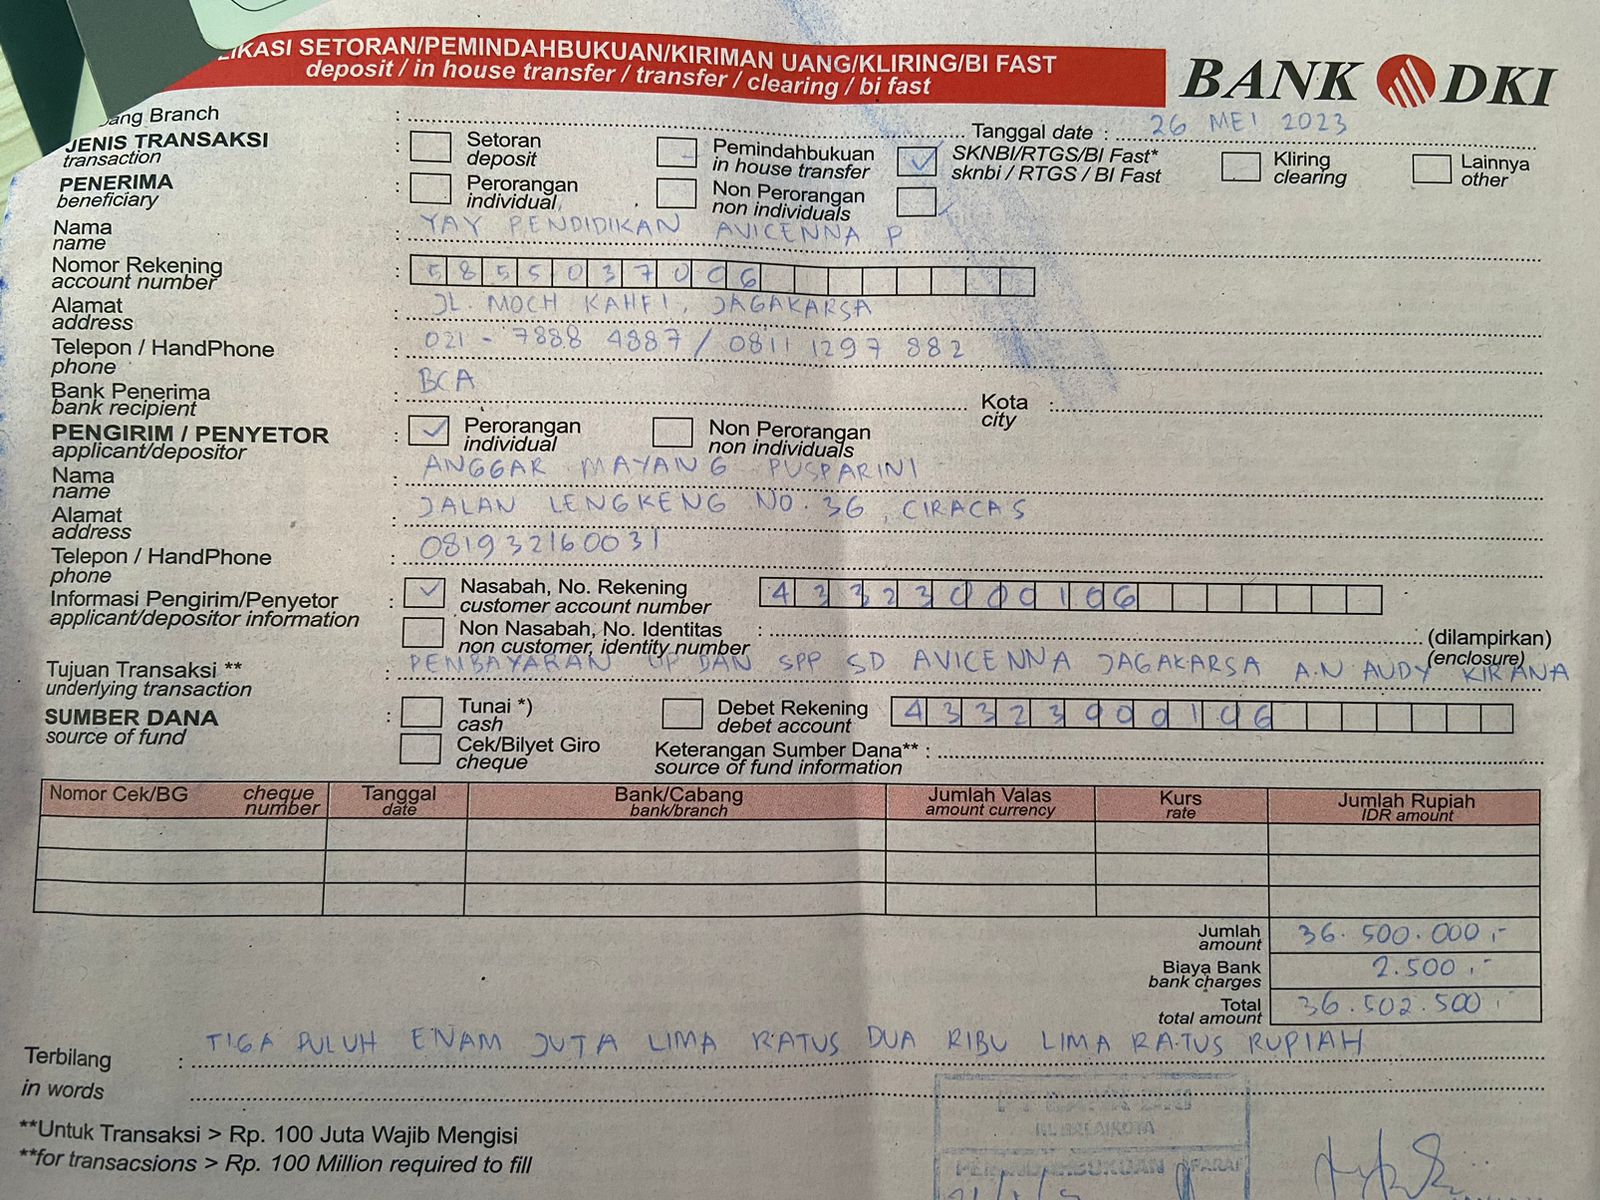 IKASI SETORAN/PEMINDAHBUKUAN/KIRIMAN UANG/KLIRING/BI FAST
deposit / in house transfer / transfer / clearing / bi fast
BANK DKI
ang Branch :
Tanggal date : 26 MEI 2023
JENIS TRANSAKSI
transaction
: Setoran
deposit
Pemindahbukuan
in house transfer
SKNBI/RTGS/BI Fast*
sknbi / RTGS / BI Fast
Kliring
clearing
Lainnya
other
PENERIMA
beneficiary
: Perorangan
individual
Non Perorangan
non individuals
Nama
name
: YAY PENDIDIKAN AVICENNA P
Nomor Rekening
account number
: 5855037006
Alamat
address
: JL. MOCH KAHFI, JAGAKARSA
Telepon / HandPhone
phone
: 021 - 7888 4887 / 0811 1297 882
Bank Penerima
bank recipient
: BCA
Kota :
city
PENGIRIM / PENYETOR
applicant/depositor
: Perorangan
individual
Non Perorangan
non individuals
Nama
name
: ANGGAR MAYANG PUSPARINI
Alamat
address
: JALAN LENGKENG NO. 36, CIRACAS
Telepon / HandPhone
phone
: 081932160031
Informasi Pengirim/Penyetor
applicant/depositor information
: Nasabah, No. Rekening
customer account number
43323000106
Non Nasabah, No. Identitas :
non customer, identity number
(dilampirkan)
(enclosure)
Tujuan Transaksi **
underlying transaction
: PEMBAYARAN UP DAN SPP SD AVICENNA JAGAKARSA A.N AUDY KIRANA
SUMBER DANA
source of fund
: Tunai *)
cash
Debet Rekening
debet account
43323000106
Cek/Bilyet Giro
cheque
Keterangan Sumber Dana** :
source of fund information
Nomor Cek/BG cheque number
Tanggal
date
Bank/Cabang
bank/branch
Jumlah Valas
amount currency
Kurs
rate
Jumlah Rupiah
IDR amount
Jumlah
amount
36.500.000,-
Biaya Bank
bank charges
2.500,-
Total
total amount
36.502.500
Terbilang
in words
: TIGA PULUH ENAM JUTA LIMA RATUS DUA RIBU LIMA RATUS RUPIAH
**Untuk Transaksi > Rp. 100 Juta Wajib Mengisi
**for transacsions > Rp. 100 Million required to fill
PT BANK DKI
BALAIKOTA
PEMINDAHBUKUAN
PARAF